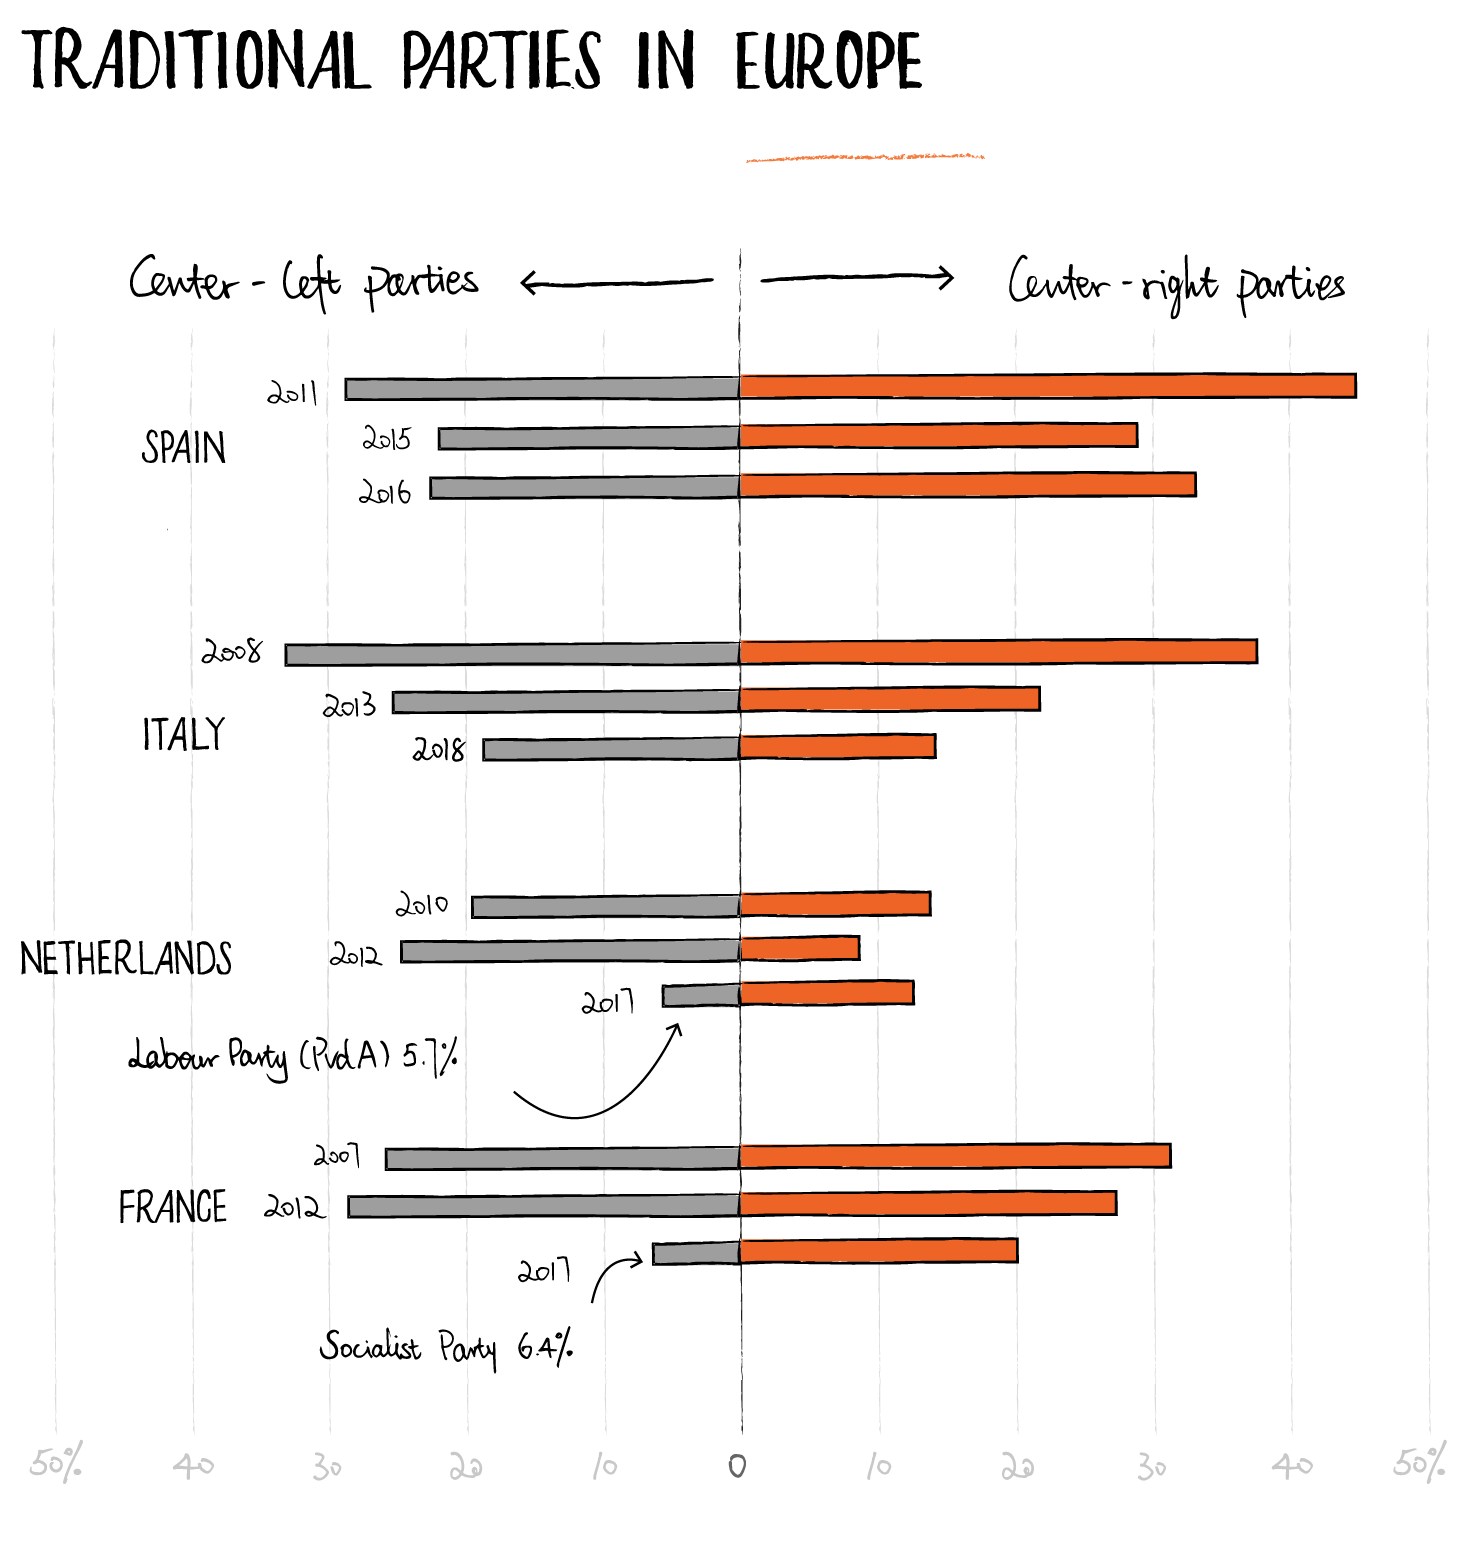 TRADITIONAL PARTIES IN EUROPE
Center-left parties
Center-right parties
2011
SPAIN
2015
2016
2008
ITALY
2013
2018
2010
NETHERLANDS
2012
2017
Labour Party (PvdA) 5.7%
2007
FRANCE
2012
2017
Socialist Party 6.4%
50% 40 30 20 10 0 10 20 30 40 50%